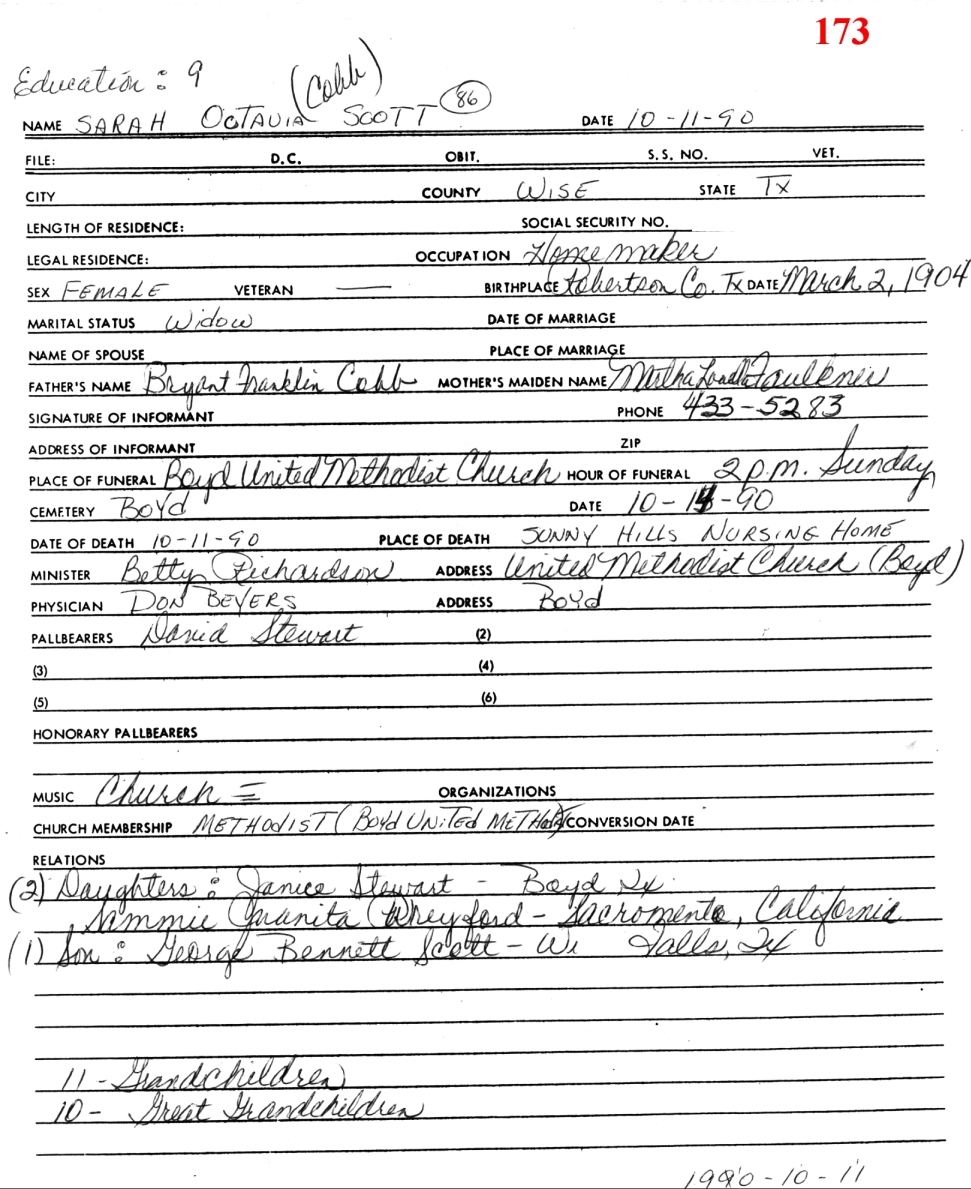 173
Education : 9
(Cobb)
NAME SARAH OCTAVIA SCOTT (86) DATE 10-11-90
FILE: D.C. OBIT. S.S. NO. VET.
CITY COUNTY WISE STATE TX
LENGTH OF RESIDENCE: SOCIAL SECURITY NO.
LEGAL RESIDENCE: OCCUPATION Homemaker
SEX FEMALE VETERAN — BIRTHPLACE Robertson Co. Tx DATE March 2, 1904
MARITAL STATUS Widow DATE OF MARRIAGE
NAME OF SPOUSE PLACE OF MARRIAGE
FATHER'S NAME Bryant Franklin Cobb MOTHER'S MAIDEN NAME Martha Faulkner
SIGNATURE OF INFORMANT PHONE 433-5283
ADDRESS OF INFORMANT ZIP
PLACE OF FUNERAL Boyd United Methodist Church HOUR OF FUNERAL 2 p.m. Sunday
CEMETERY Boyd DATE 10-14-90
DATE OF DEATH 10-11-90 PLACE OF DEATH SUNNY HILLS NURSING HOME
MINISTER Betty Richardson ADDRESS United Methodist Church (Boyd)
PHYSICIAN DON BEYERS ADDRESS Boyd
PALLBEARERS David Stewart (2)
(3) (4)
(5) (6)
HONORARY PALLBEARERS
MUSIC Church = ORGANIZATIONS
CHURCH MEMBERSHIP METHODIST (Boyd UNITED METHOD) CONVERSION DATE
RELATIONS
(2) Daughters : Janice Stewart - Boyd Tx.
Sammie Juanita - Sacromento, California
(1) Son : George Bennett Scott - Wi Falls, Tx
11 - Grandchildren
10 - Great Grandchildren
1990-10-11